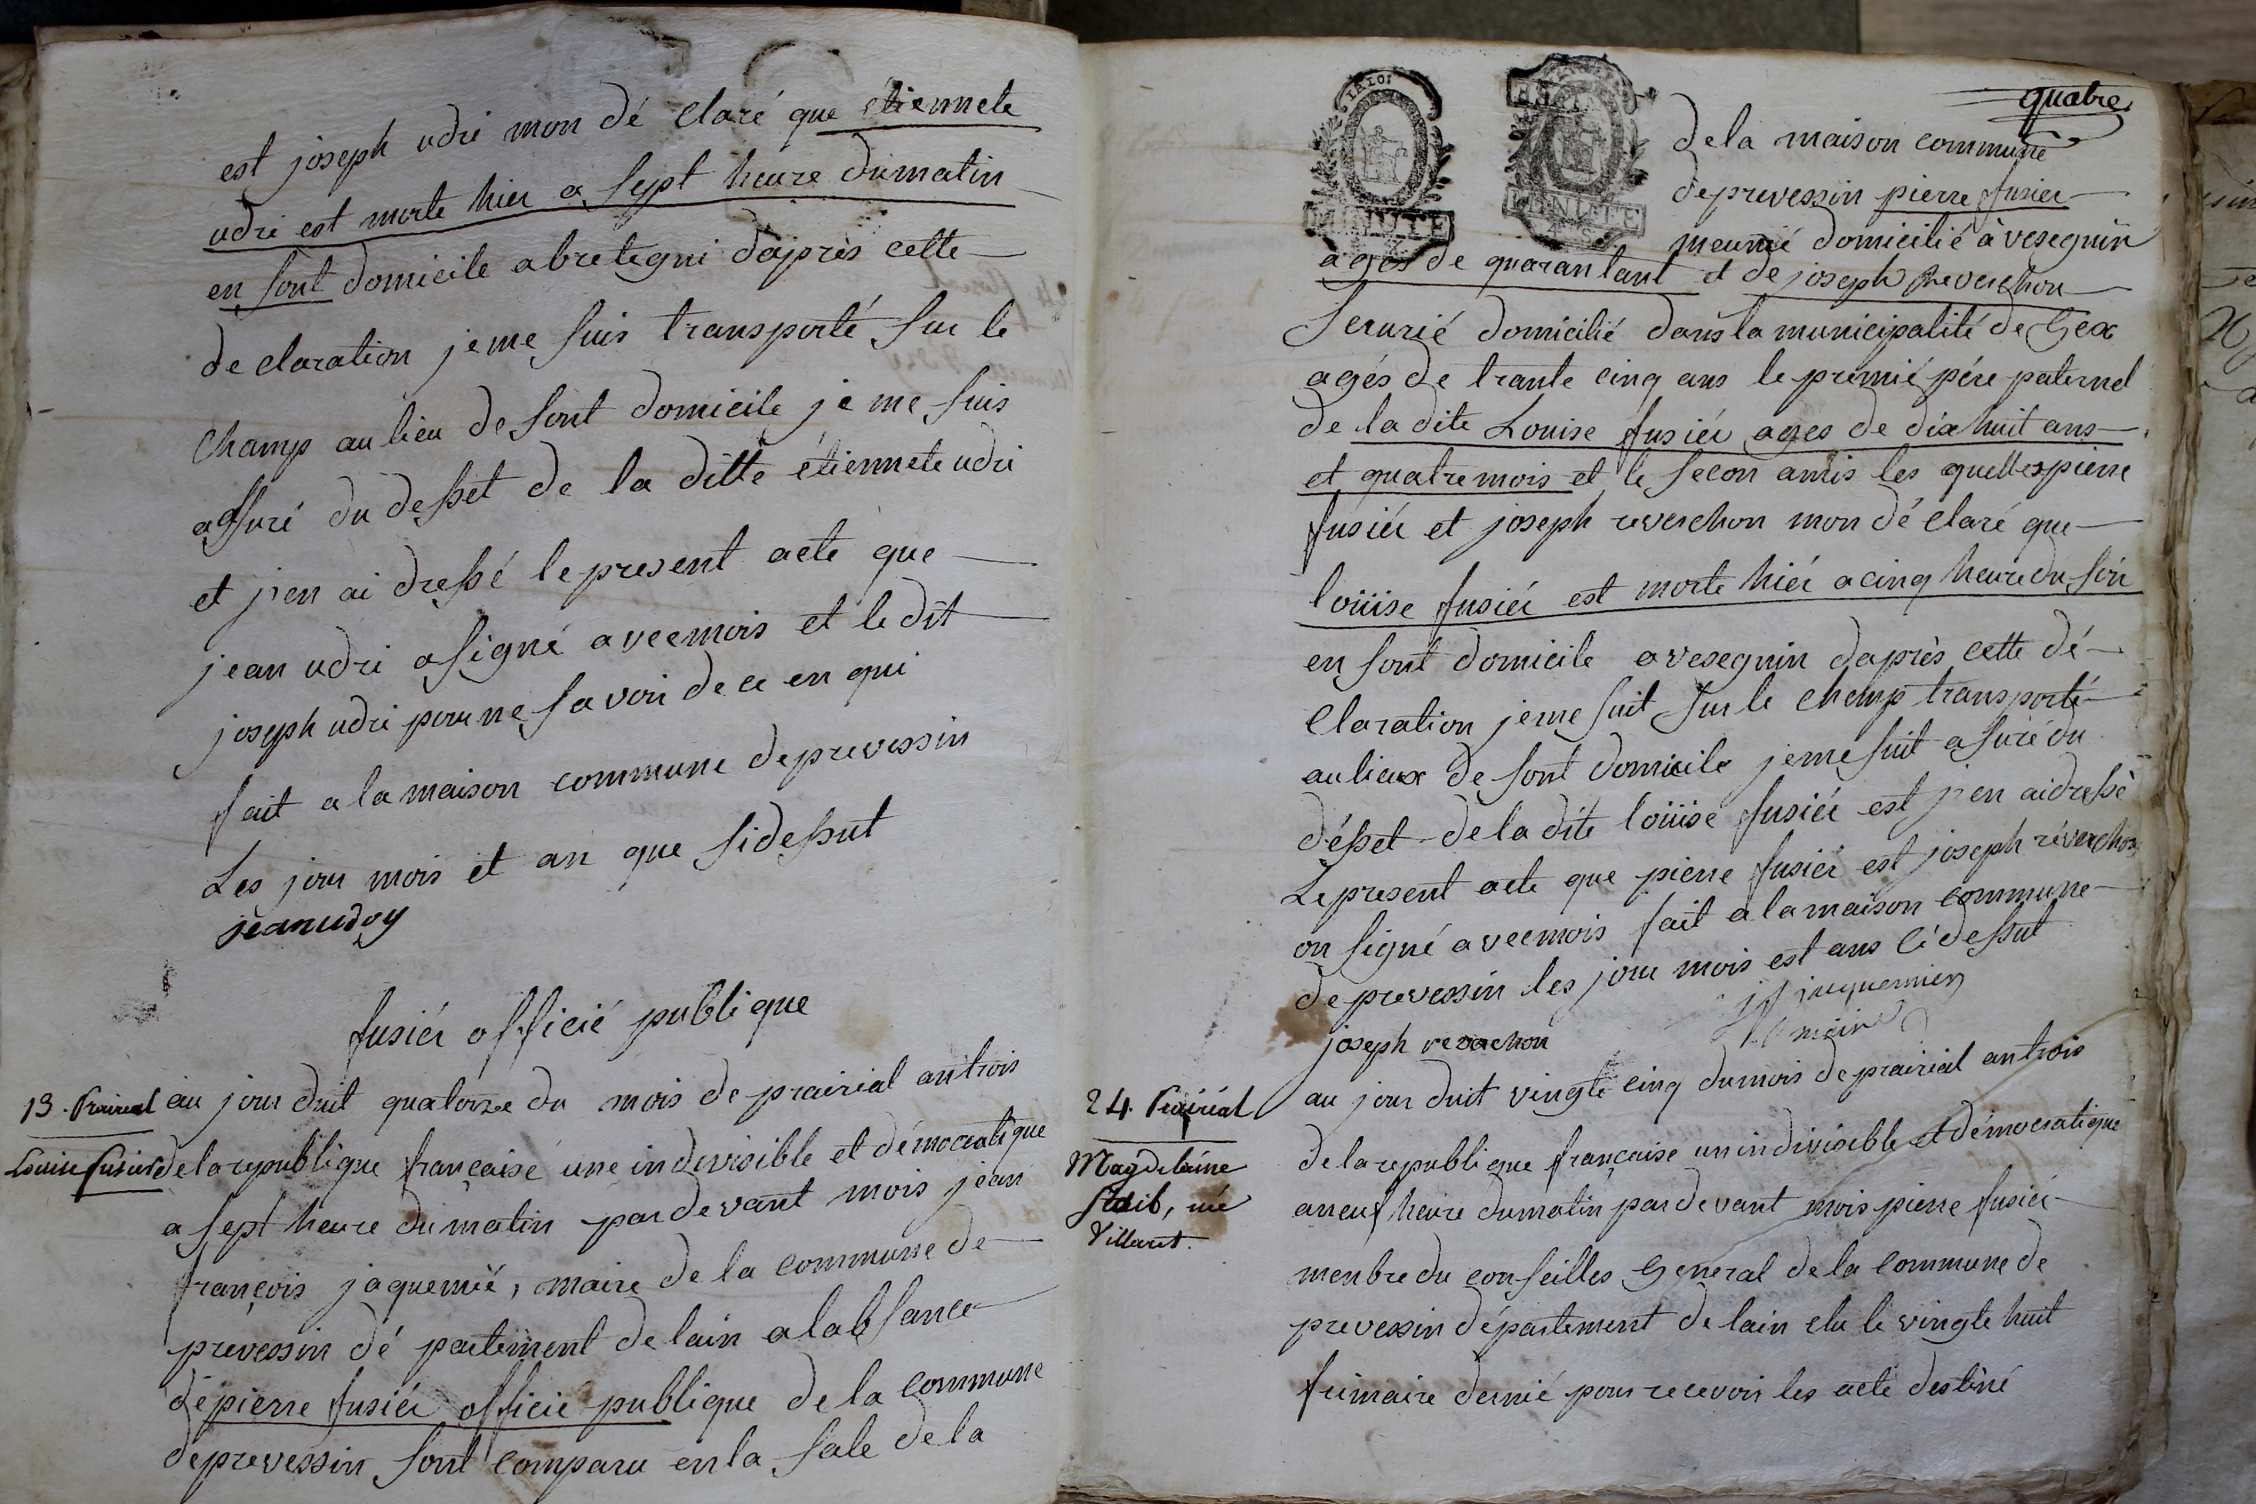 est joseph udri mon dé claré que étiennete
udri est morte hier a sept heure du matin
en sont domicile a bretegni d'après cette
de claration je me suis transporté sur le
champ au lieu de sont domicile je me suis
assuré du desset de la ditte étiennete udri
et j'en ai dressé le present acte que
jean udri a signé avec mois et le dit
joseph udri pour ne savoir de ce en qui
fait a la maison commune de prevessin
Les jour mois et an que sidessut
jean udry
fusiér officié publique
13. Prairéal
Louise fusier
au jour duit quatorze du mois de prairial an trois
de la republique française une indivisible et démocratique
a sept heure du matin par devant mois jean
françois jaquemié, maire de la commune de
prévessin dé partement de lain a lab sance
de pierre fusiér officié publique de la commune
de prevessin sont comparu en la sale de la
quatre
LA LOI
MINUTE
de la maison commune
de prevessin pierre fusier
meunié domicilié à vesegnin
agés de quarant ant et de joseph Reverchon
serurié domicilié dans la municipalité de Gex
agés de trante cinq ans le premié pére paternel
de la dite Louise fusiér ages de dix huit ans
et quatre mois et le secon amis les quelles pierre
fusiér et joseph reverchon mon dé claré que
loüise fusiér est morte hiér a cinq heure du soir
en sont domicile a vesegnin d'après cette dé
claration je me suit sur le champ transporté
au lieux de sont domicile je me suit asuré du
désset de la dite loüise fusiér est j'en ai dressé
Le present acte que pierre fusiér est joseph reverchon
on signé avec mois fait a la maison commune
de prevessin les jour mois est ans cidessut
jf jacquemier
maire
joseph reverchon
24. Prairéal
Magdelaine
Staib, née
Villaret.
au jour duit vingte cinq du mois de prairial an trois
de la republique française un indivisible et démocratique
a neuf heure du matin par devant mois pierre fusiér
menbre du conseilles General de la commune de
prevessin département de lain elu le vingte huit
frimaire dernié pour recevoir les acte destiné